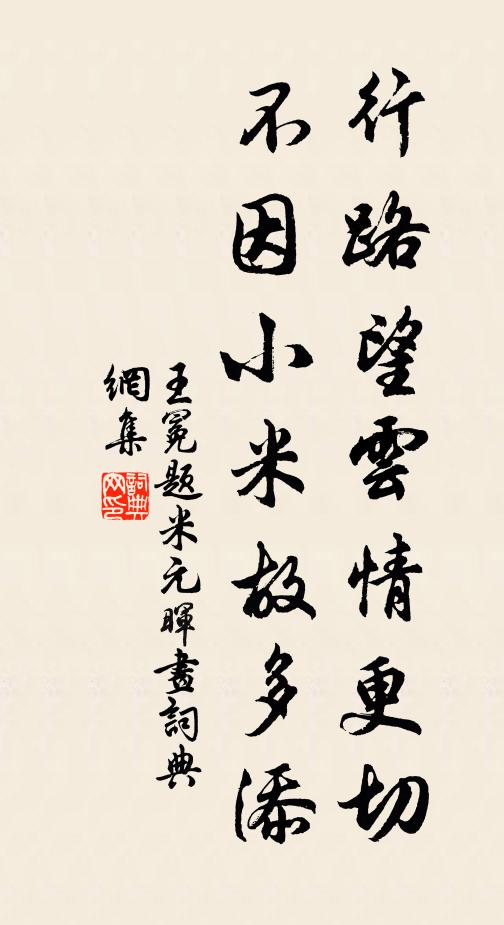 行路望雲情更切
不因小米故多添
王冕題米元暉畫詞典
網集
詞典
网印